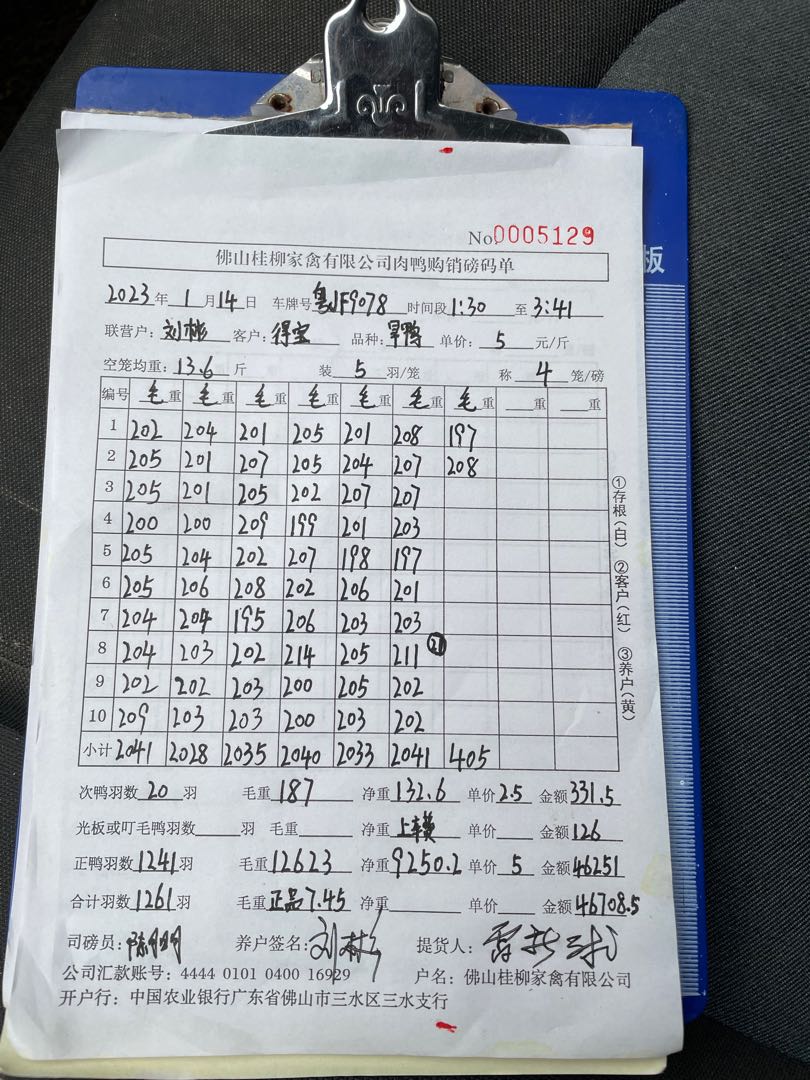 No 0005129
板
佛山桂柳家禽有限公司肉鸭购销磅码单
2023年 1月14日 车牌号粤JF9078 时间段1:30 至 3:41
联营户:刘彬 客户:得宝 品种:旱鸭 单价:5 元/斤
空笼均重:13.6 斤 装 5 羽/笼 称 4 笼/磅
编号 毛重 毛重 毛重 毛重 毛重 毛重 毛重 重 重
1 202 204 201 205 201 208 197
2 205 201 207 205 204 207 208
3 205 201 205 202 207 207
4 200 200 209 199 201 203
5 205 204 202 207 198 197
6 205 206 208 202 206 201
7 204 204 195 206 203 203
8 204 203 202 214 205 211 21
9 202 202 203 200 205 202
10 209 203 203 200 203 202
小计 2041 2028 2035 2040 2033 2041 405
次鸭羽数 20 羽 毛重 187 净重 132.6 单价 2.5 金额 331.5
光板或叮毛鸭羽数 羽 毛重 净重 上车费 单价 金额 126
正鸭羽数 1241羽 毛重 12623 净重 9250.2 单价 5 金额 46251
合计羽数 1261 羽 毛重 正品7.45 净重 单价 金额 46708.5
司磅员: 养户签名:刘彬 提货人:
公司汇款账号:4444 0101 0400 16929 户名:佛山桂柳家禽有限公司
开户行:中国农业银行广东省佛山市三水区三水支行
①存根(白) ②客户(红) ③养户(黄)